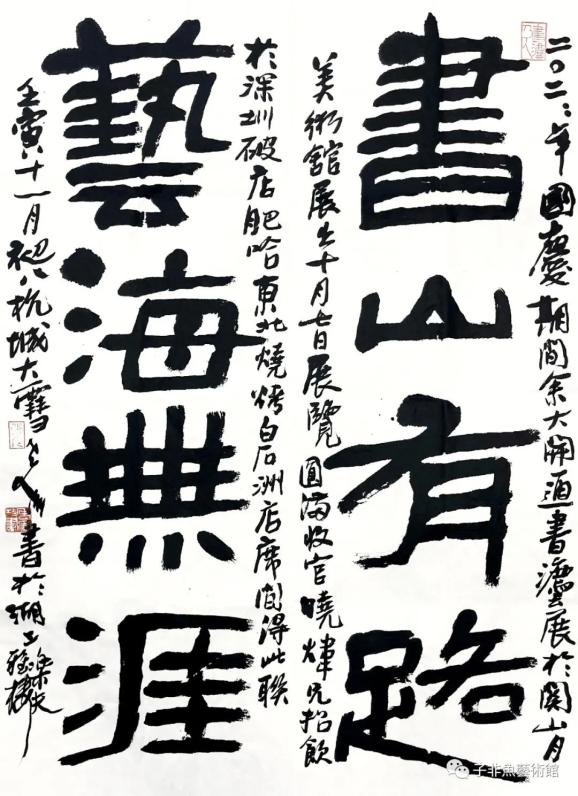 書山有路
二〇二二年國慶期間余大開道書灋展於關山月
美術館展出十月七日展覽圓滿收官曉煒兄招飲
藝海無涯
於深圳破店肥哈東北燒烤白石洲店席間得此聯
壬寅十一月初八杭城大雪
書於湖上
子非魚藝術館